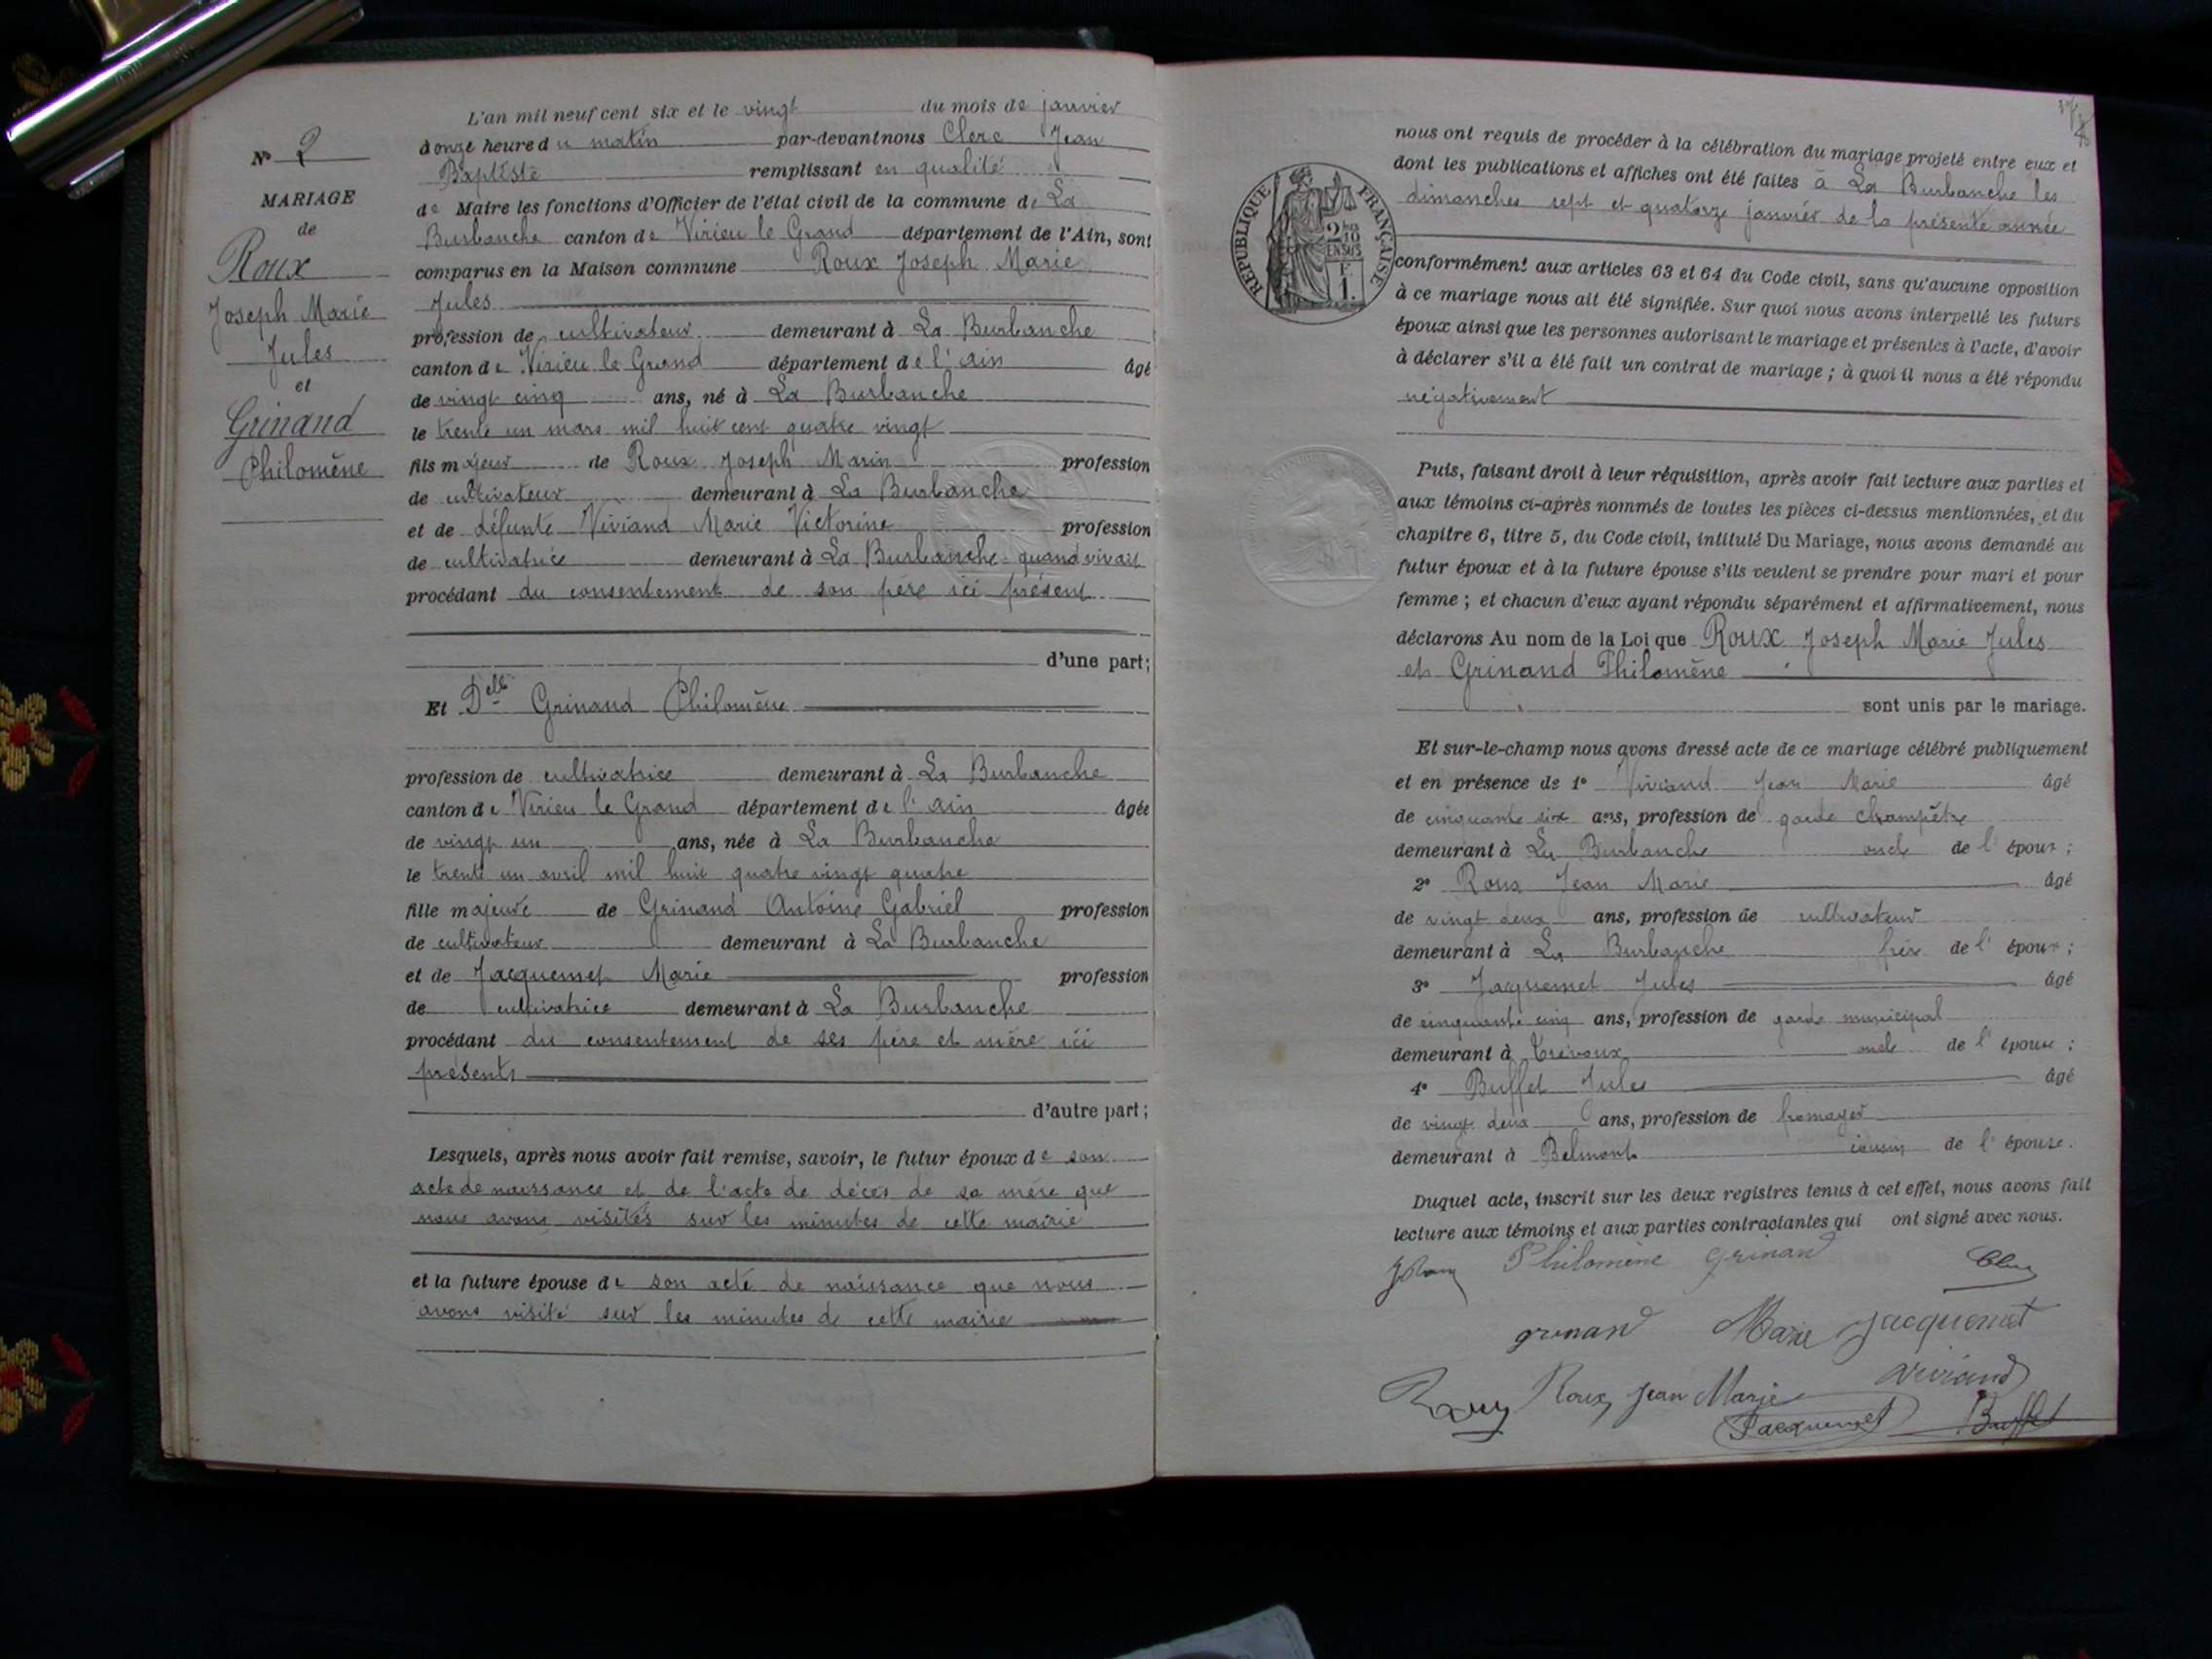 N° 2
MARIAGE
de
Roux
Joseph Marie
Jules
et
Grinand
Philomène
L'an mil neuf cent six et le vingt du mois de janvier
à onze heure du matin par-devant nous Clerc Jean
Baptiste remplissant en qualité
de Maire les fonctions d'Officier de l'état civil de la commune de La
Burbanche canton de Virieu le Grand département de l'Ain, sont
comparus en la Maison commune Roux Joseph Marie
Jules
profession de cultivateur demeurant à La Burbanche
canton de Virieu le Grand département de l'ain âgé
de vingt cinq ans, né à La Burbanche
le trente un mars mil huit cent quatre vingt
fils majeur de Roux Joseph Marin profession
de cultivateur demeurant à La Burbanche
et de défunte Viviand Marie Victorine profession
de cultivatrice demeurant à La Burbanche quand vivait
procédant du consentement de son père ici présent
d'une part;
Et Delle Grinand Philomène
profession de cultivatrice demeurant à La Burbanche
canton de Virieu le Grand département de l'ain âgée
de vingt un ans, née à La Burbanche
le trente un avril mil huit quatre vingt quatre
fille majeure de Grinand Antoine Gabriel profession
de cultivateur demeurant à La Burbanche
et de Jacquemet Marie profession
de cultivatrice demeurant à La Burbanche
procédant du consentement de ses père et mère ici
présents
d'autre part;
Lesquels, après nous avoir fait remise, savoir, le futur époux de son
acte de naissance et de l'acte de décès de sa mère que
nous avons visités sur les minutes de cette mairie
et la future épouse de son acte de naissance que nous
avons visité sur les minutes de cette mairie
nous ont requis de procéder à la célébration du mariage projeté entre eux et
dont les publications et affiches ont été faites à La Burbanche les
dimanches sept et quatorze janvier de la présente année
RÉPUBLIQUE FRANÇAISE
conformément aux articles 63 et 64 du Code civil, sans qu'aucune opposition
à ce mariage nous ait été signifiée. Sur quoi nous avons interpellé les futurs
époux ainsi que les personnes autorisant le mariage et présentes à l'acte, d'avoir
à déclarer s'il a été fait un contrat de mariage; à quoi il nous a été répondu
négativement
Puis, faisant droit à leur réquisition, après avoir fait lecture aux parties et
aux témoins ci-après nommés de toutes les pièces ci-dessus mentionnées, et du
chapitre 6, titre 5, du Code civil, intitulé Du Mariage, nous avons demandé au
futur époux et à la future épouse s'ils veulent se prendre pour mari et pour
femme; et chacun d'eux ayant répondu séparément et affirmativement, nous
déclarons Au nom de la Loi que Roux Joseph Marie Jules
et Grinand Philomène
sont unis par le mariage.
Et sur-le-champ nous avons dressé acte de ce mariage célébré publiquement
et en présence de 1° Viviand Jean Marie âgé
de cinquante six ans, profession de garde champêtre
demeurant à La Burbanche oncle de l'époux;
2° Roux Jean Marie âgé
de vingt deux ans, profession de cultivateur
demeurant à La Burbanche frère de l'époux;
3° Jacquemet Jules âgé
de cinquante cinq ans, profession de garde municipal
demeurant à Trévoux oncle de l'épouse;
4° Buffet Jules âgé
de vingt deux ans, profession de fromager
demeurant à Belmont cousin de l'épouse.
Duquel acte, inscrit sur les deux registres tenus à cet effet, nous avons fait
lecture aux témoins et aux parties contractantes qui ont signé avec nous.
JRoux Philomène Grinand Clerc
grinand Marie Jacquemet
Roux Roux Jean Marie viviand
Jacquemet Buffet